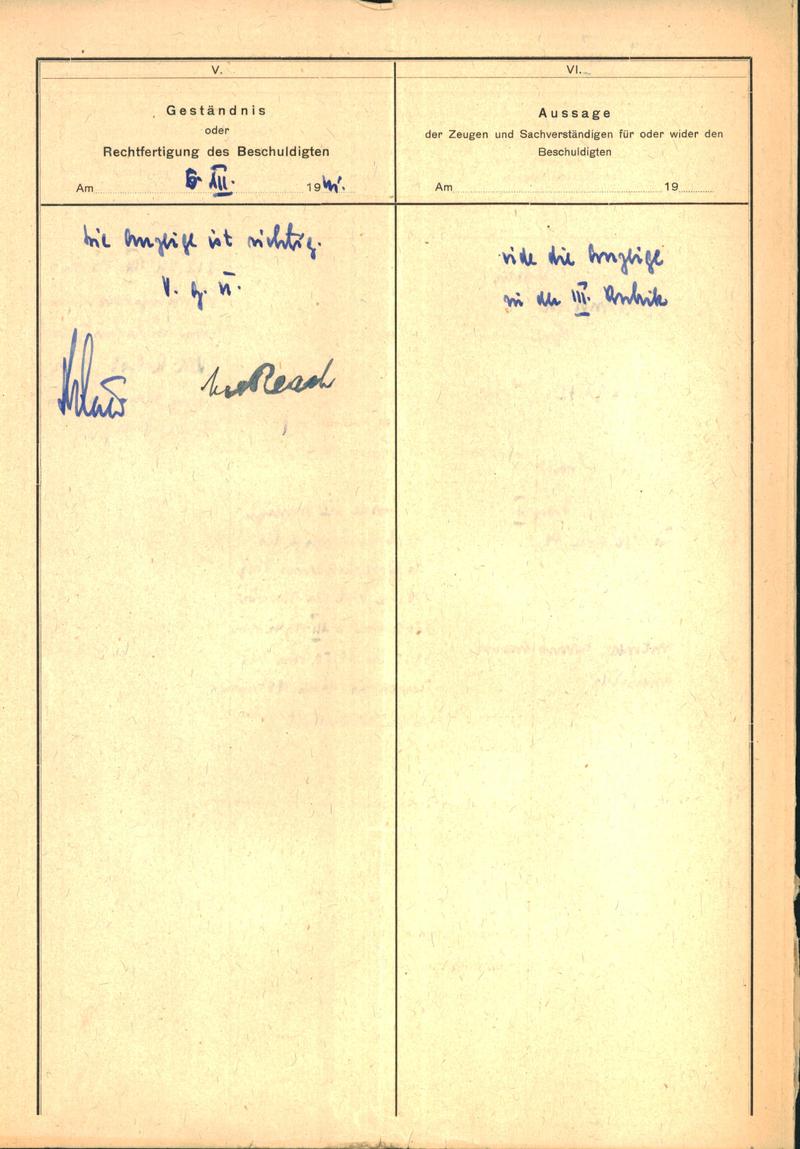 V.
Geständnis
oder
Rechtfertigung des Beschuldigten
Am 6. XII. 19
Die Anzeige ist richtig.
V. g. u.
VI.
Aussage
der Zeugen und Sachverständigen für oder wider den
Beschuldigten
Am 19
vide die Anzeige
in der III. Rubrik